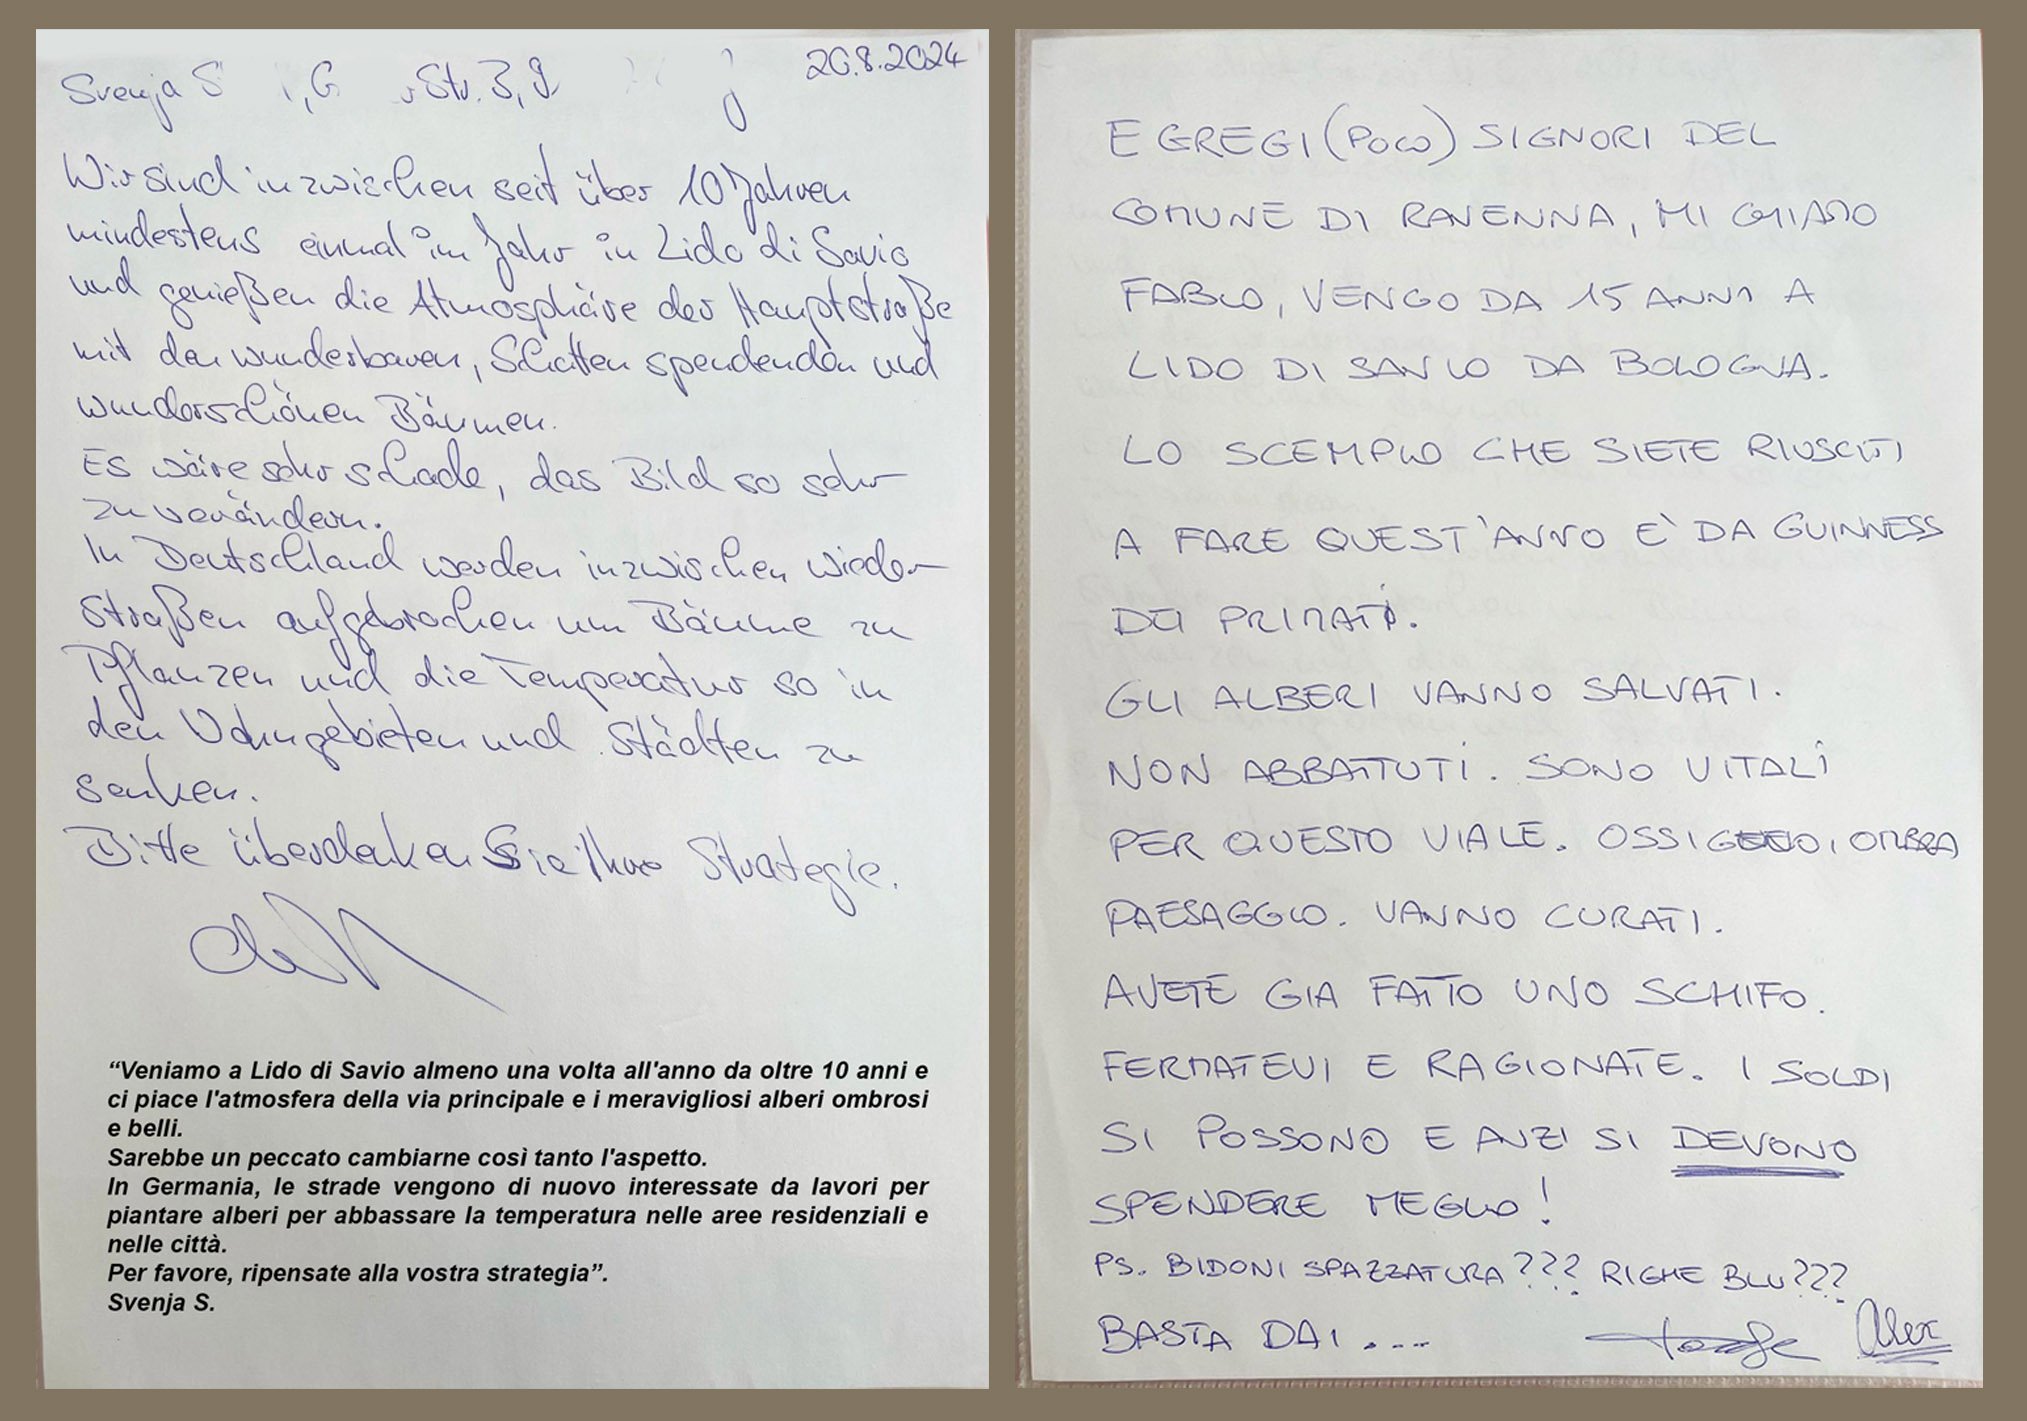 Svenja S , G Str. 3, 9
20.8.2024
Wir sind inzwischen seit über 10 Jahren
mindestens einmal im Jahr in Lido di Savio
und genießen die Atmosphäre der Hauptstraße
mit den wunderbaren, Schatten spendenden und
wunderschönen Bäumen.
Es wäre sehr schade, das Bild so sehr
zu verändern.
In Deutschland werden inzwischen wieder
Straßen aufgebrochen um Bäume zu
Pflanzen und die Temperatur so in
den Wohngebieten und Städten zu
senken.
Bitte überdenken Sie Ihre Strategie.
“Veniamo a Lido di Savio almeno una volta all'anno da oltre 10 anni e
ci piace l'atmosfera della via principale e i meravigliosi alberi ombrosi
e belli.
Sarebbe un peccato cambiarne così tanto l'aspetto.
In Germania, le strade vengono di nuovo interessate da lavori per
piantare alberi per abbassare la temperatura nelle aree residenziali e
nelle città.
Per favore, ripensate alla vostra strategia”.
Svenja S.
EGREGI (POCO) SIGNORI DEL
COMUNE DI RAVENNA, MI CHIAMO
FABIO, VENGO DA 15 ANNI A
LIDO DI SAVIO DA BOLOGNA.
LO SCEMPIO CHE SIETE RIUSCITI
A FARE QUEST'ANNO E' DA GUINNESS
DEI PRIMATI.
GLI ALBERI VANNO SALVATI.
NON ABBATTUTI. SONO VITALI
PER QUESTO VIALE. OSSIGENO, OMBRA
PAESAGGIO. VANNO CURATI.
AVETE GIA FATTO UNO SCHIFO.
FERMATEVI E RAGIONATE. I SOLDI
SI POSSONO E ANZI SI DEVONO
SPENDERE MEGLIO!
PS. BIDONI SPAZZATURA??? RIGHE BLU???
BASTA DAI ....
Alex